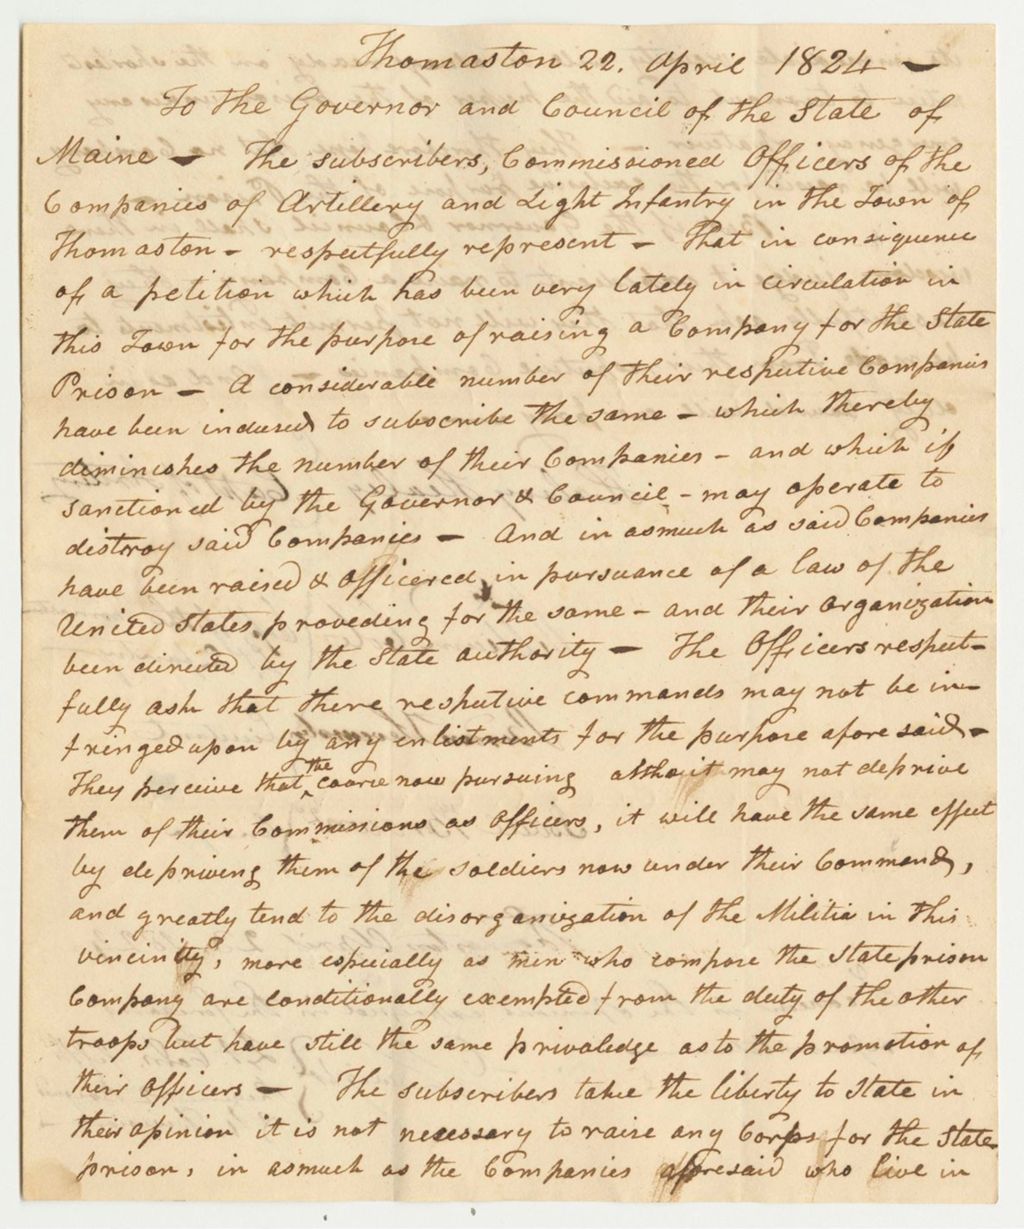 Thomaston 22. April 1824 —
To the Governor and Council of the State of
Maine — The subscribers, Commissioned Officers of the
Companies of Artillery and Light Infantry in the Town of
Thomaston - respectfully represent - That in consiquence
of a petition which has been very lately in circulation in
this Town for the purpose of raising a Company for the State
Prison — A considerable number of their respective Companies
have been indused to subscribe the same - which thereby
diminishes the number of their Companies - and which if
sanctioned by the Governor & Council - may operate to
distroy said Companies — And in asmuch as said Companies
have been raised & officered, in pursuance of a law of the
United States, proveding for the same - and their Organization
been directed by the State authority — The Officers respect-
fully ask that there respective commands may not be in-
fringed upon by any enlistments for the purpose afore said -
They perceive that the course now pursuing altho it may not deprive
them of their Commissions as Officers, it will have the same effect
by depriving them of the soldiers now under their Command,
and greatly tend to the disorganization of the Militia in this
vincinity, more especially as men who compose the State prison
Company are conditionally exempted from the duty of the other
troops but have still the same privaledge as to the promotion of
their officers — The subscribers take the liberty to State in
their opinion it is not necessary to raise any Corps for the State
prison, in asmuch as the Companies aforesaid who live in